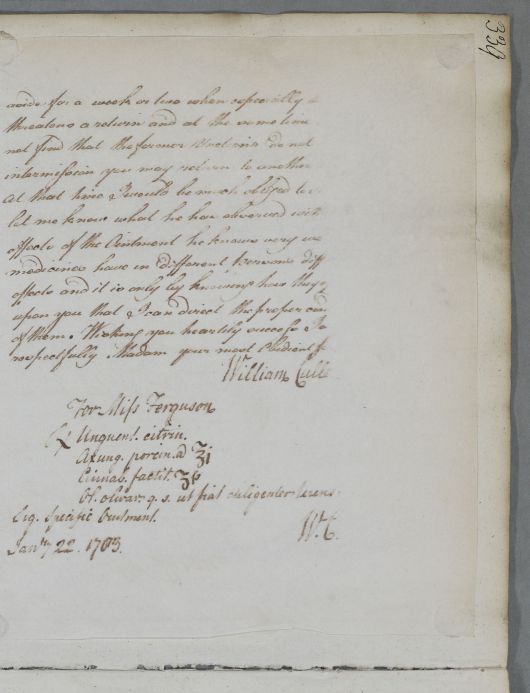 339
aside for a week or two when especially
threatens a return and at the same time
not find that the former
intermission you may return to another
at that time I would be much obliged to
let me know what he has observed with
effects of the Ointment he knows very we
medicines have in different persons diff
effects and it is only by knowing how they
upon you that I can direct the proper con
of them. Wishing you heartily success I a
respectfully Madam your most Obedient S
William Cull
For Miſs Ferguson
℞ Unguent. citrin.
Axung. porcin. a ʒi
Cinnab. factit. ʒſs
Ol. olivar. q. s. ut fiat diligenter terens
Sig. Specific Ointment.
W. C.
Janry 22. 1783.